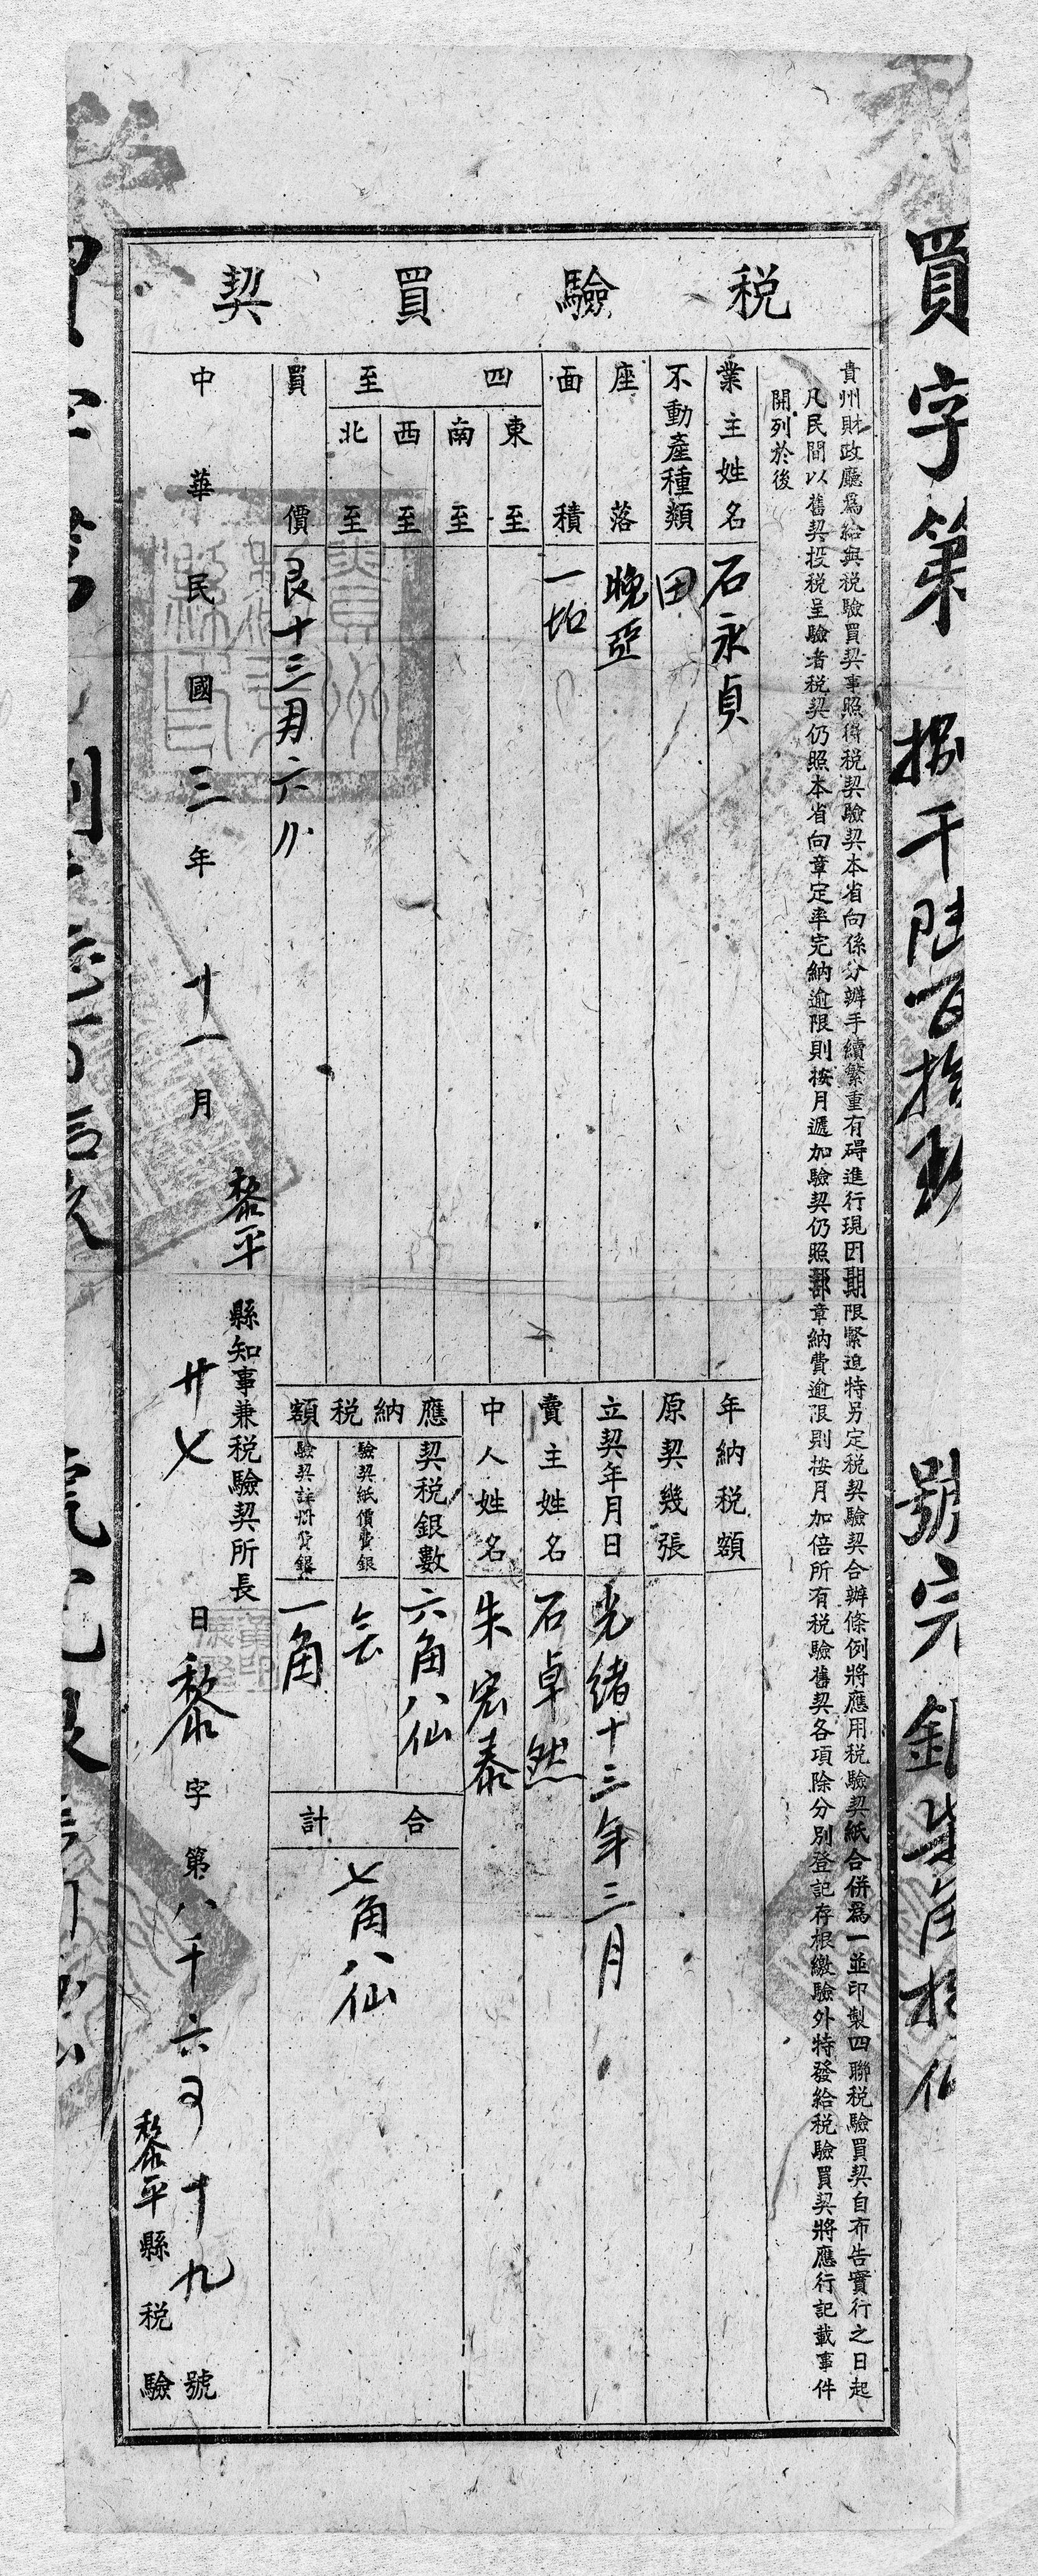 買字第捌千陸百拾玖號完銀柒角捌仙
税驗買契
貴州財政廳爲給與税驗買契事照得税契驗契本省向係分辦手續繁重有碍進行現因期限緊迫特另定税契驗契合辦條例將應用税驗契紙合併爲一並印製四聯税驗買契自布告實行之日起
凡民間以舊契投税呈驗者税契仍照本省向章定率完納逾限則按月遞加驗契仍照部章納費逾限則按月加倍所有税驗舊契各項除分别登記存根繳驗外特發給税驗買契將應行記載事件
開列於後
業主姓名 石永貞
不動產種類 田
座落 晚亞
面積 一坵
四至
東至
南至
西至
北至
買價 艮十三両六
年納税額
原契幾張
立契年月日 光緒十三年三月
賣主姓名 石卓然
中人姓名 朱宏泰
應納税額
契税銀數 六角八仙
驗契紙價費銀 去
驗契註册費銀 一角
合計 七角八仙
黎平縣知事兼税驗契所長
中華民國三年十一月廿七日黎字第八千六百十九號
黎平縣税驗